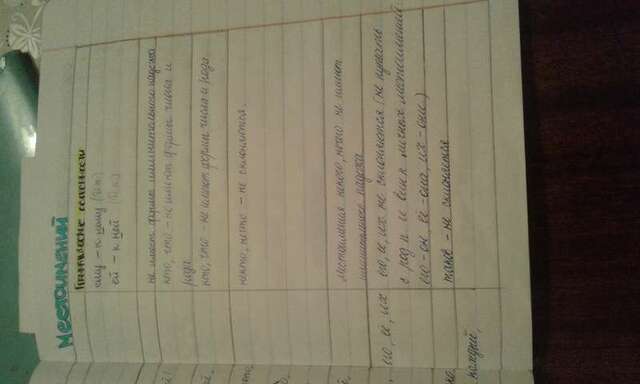 Местоимений
Грамматические особенности
ему – к нему (Д.п.)
ей – к ней (Д.п.)
не имеют формы именительного падежа
кто, что – не имеют формы числа и
рода
кто, что – не имеют формы числа и рода.
некто, нечто – не склоняются.
местоимения некого, нечего не имеют
именительного падежа
его, её, их
его, её, их не склоняются (не путать
с род.п. и вин.п личных местоимений:
его-он, её-она, их-они.)
таков – не склоняется